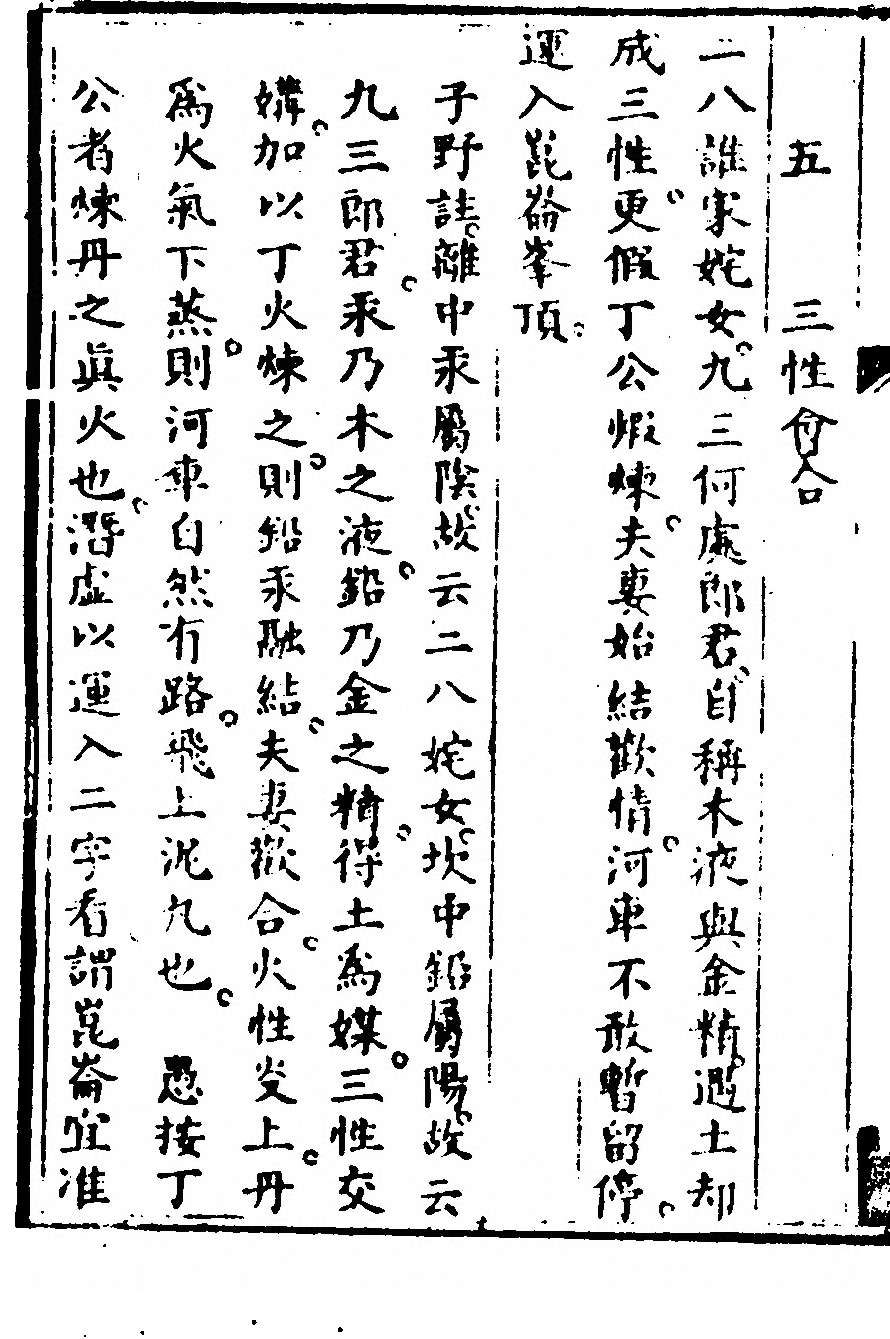 五　三性會合
二八誰家姹女。九三何處郎君。自稱木液與金精。遇土却
成三性。更假丁公煅煉。夫妻始結歡情。河車不敢暫留停。
運入崑崙峯頂。
子野註。離中汞屬陰。故云二八姹女。坎中鉛屬陽。故云
九三郎君。汞乃木之液。鉛乃金之精。得土爲媒。三性交
媾。加以丁火煉之。則鉛汞融結。夫妻歡合。火性炎上。丹
爲火氣下蒸。則河車自然有路。飛上泥丸也。　愚按丁
公者煉丹之眞火也。潛虛以運入二字看謂崑崙宜准